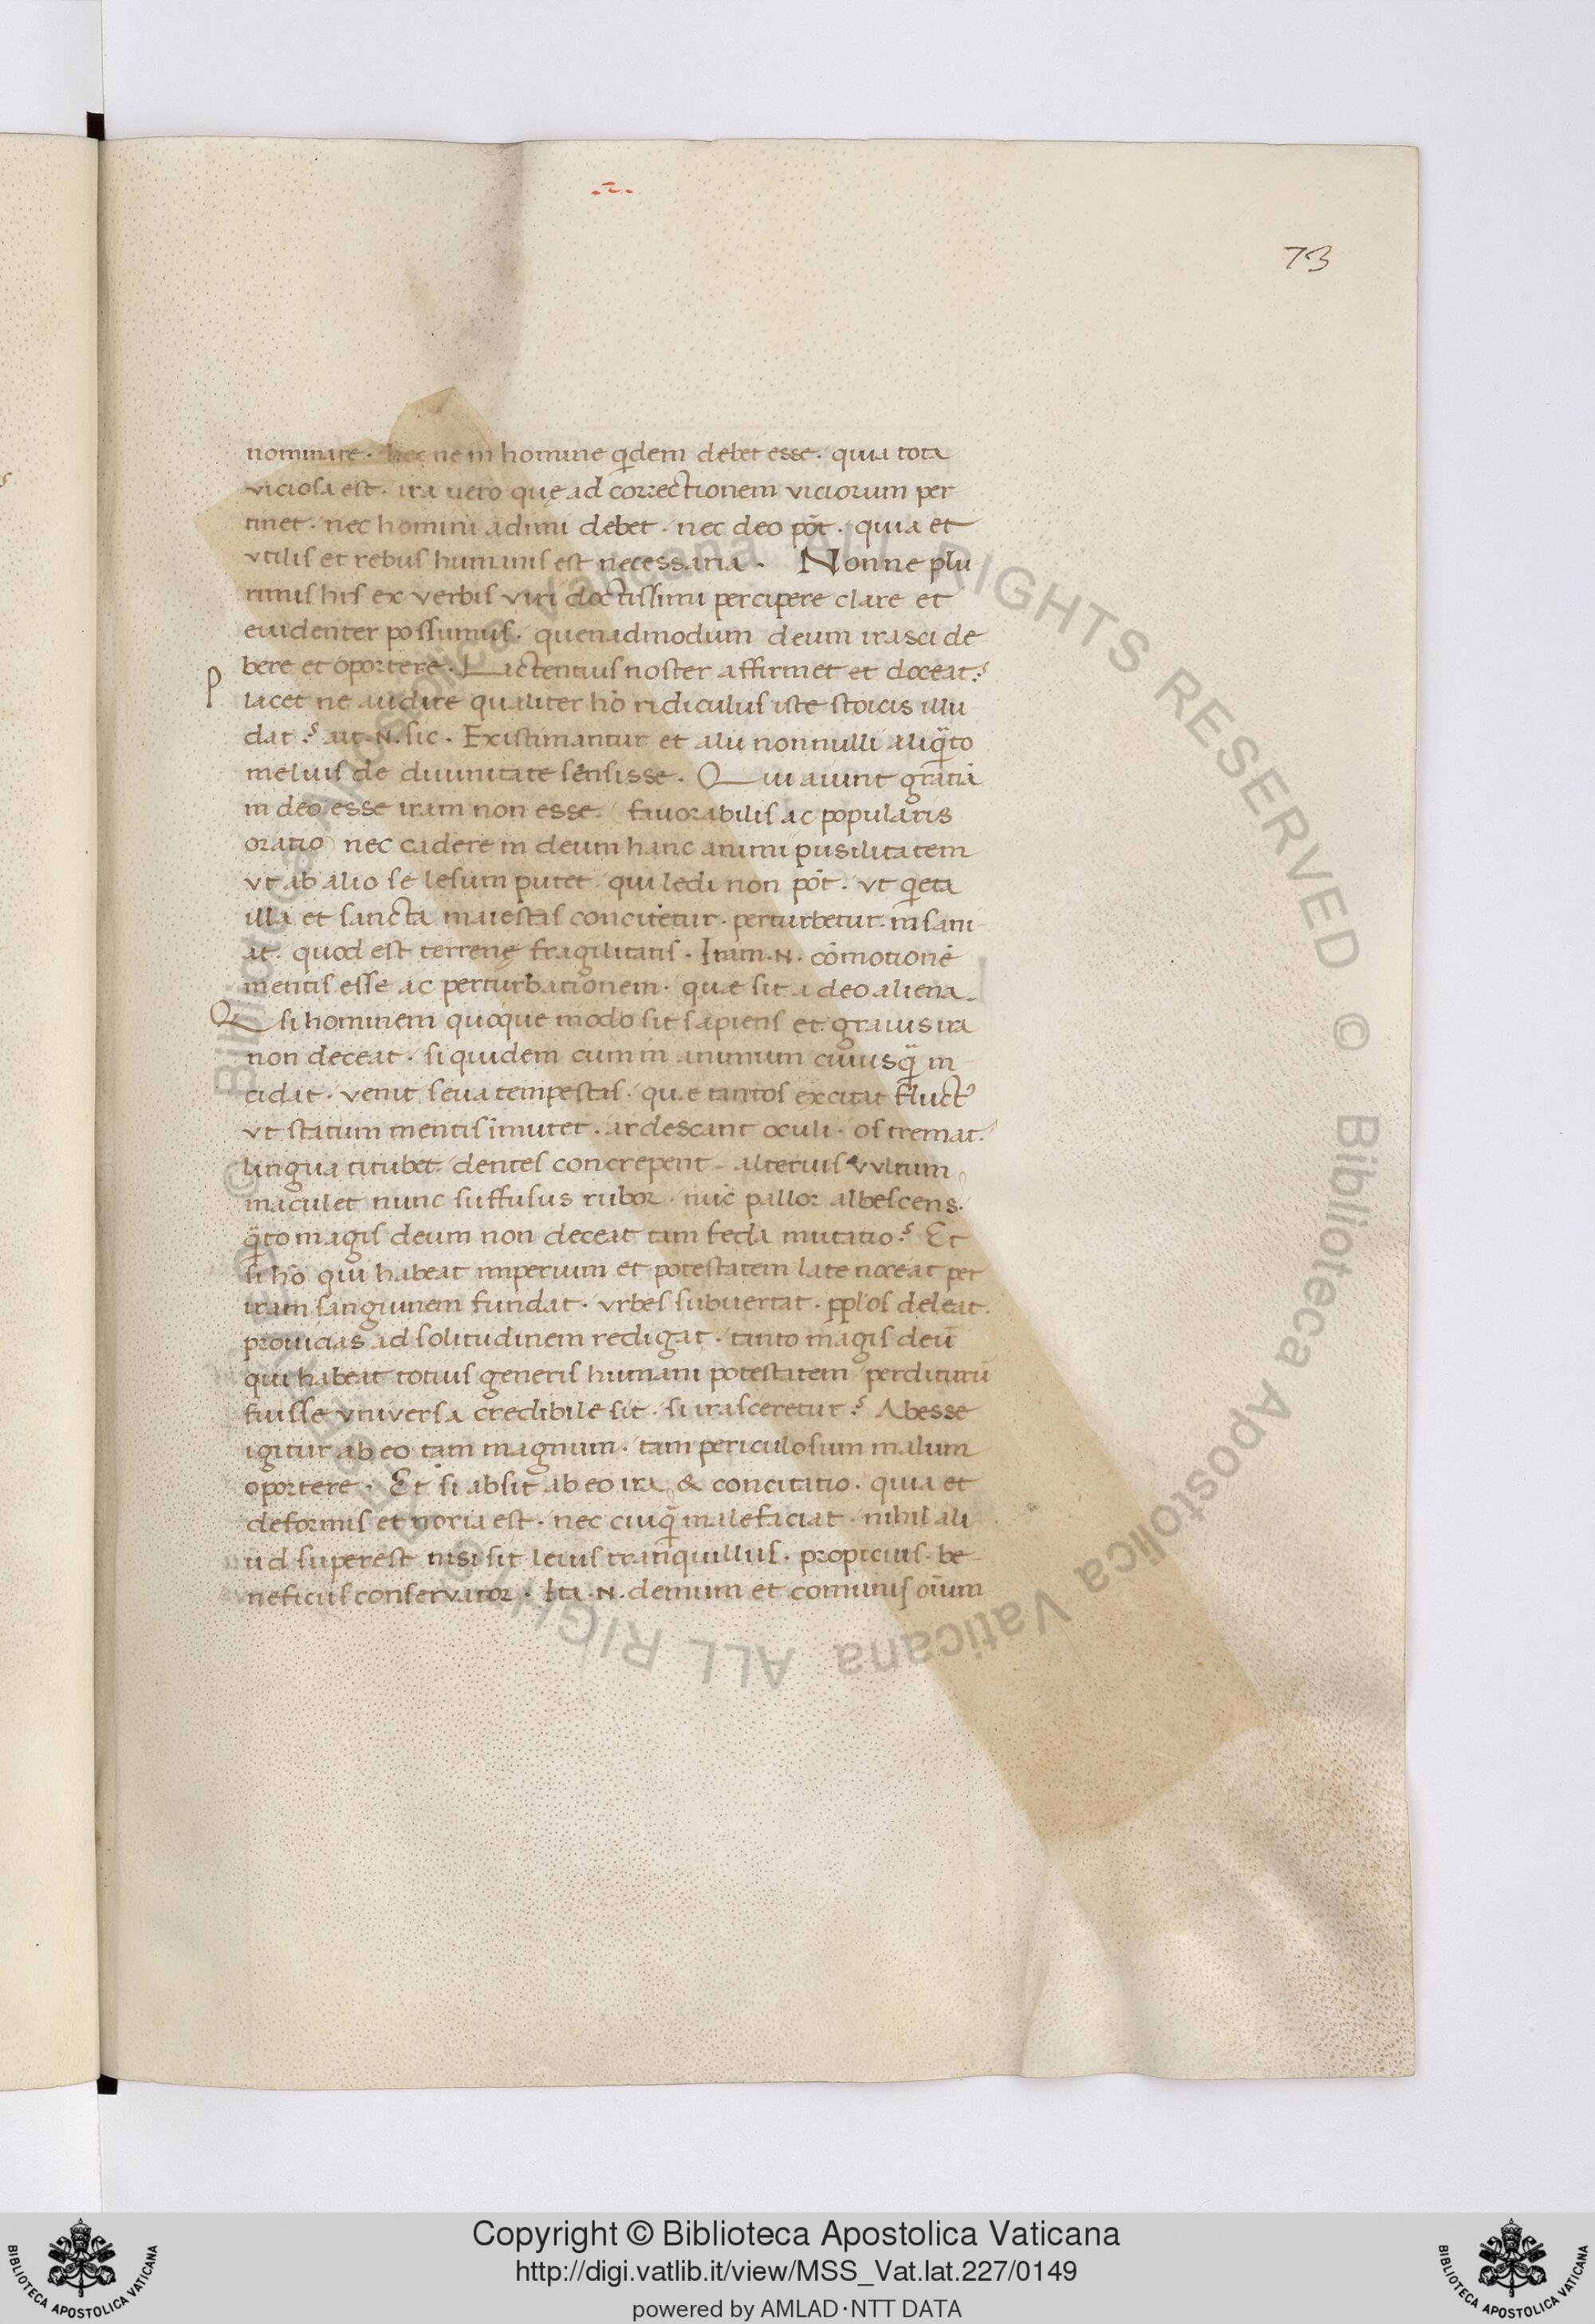 .2.
73
nominare. hec ne in homine q̄dem debet esse. quia tota
viciosa est. ira uero quę ad correctionem viciorum per
tinet. nec homini adimi debet. nec deo pōt. quia et
vtilis et rebus humanis est necessaria. Nonne plu
rimis his ex verbis viri doctissimi percipere clare et
euidenter possumus. quenadmodum deum irasci de
bere et oportere. Lactentius noster affirmet et doceat?
P lacet ne audire qualiter hō ridiculus iste stoicis illu
dat? ait .N. sic. Existimantur et alii nonnulli aliq̄to
melius de diuinitate sensisse. Qui aiunt gratiā
in deo esse iram non esse. fauorabilis ac popularis
oratio nec cadere in deum hanc animi pusilitatem
vt ab alio se lesum putet. qui ledi non pōt. vt q̄eta
illa et sancta maiestas concitetur. perturbetur. insani
at. quod est terrenę fragilitatis. Iram .N. cōmotionē
mentis esse ac perturbationem. quae sit a deo aliena.
Q si hominem quoque modo sit sapiens et grauis ira
non deceat. siquidem cum in animum cuiusq̄ in
cidat. venit seua tempestas. quae tantos excitat fluct9
vt statum mentis imutet. ardescant oculi. os tremat.
lingua titubet dentes concrepent alterius vultum
maculet nunc suffusus rubor. nūc pallor albescens.
q̄to magis deum non deceat tam feda mutatio? Et
si hō qui habeat imperium et potestatem late noceat per
iram sanguinem fundat. vrbes subuertat. ppl'os deleat.
prouicias ad solitudinem redigat. tanto magis deū
qui habeat totius generis humani potestatem perditurū
fuisse vniversa credibile sit. si irasceretur? Abesse
igitur ab eo tam magnum. tam periculosum malum
oportere. Et si absit ab eo ira & concitatio. quia et
deformis et noxia est. nec cuiq̄ malefaciat. nihil ali
ud superest nisi sit leius tranquillus. propicius. be-
neficus conservator. Ita .N. demum et comunis oīum
© Biblioteca Apostolica Vaticana ALL RIGHTS RESERVED © Biblioteca Apostolica Vaticana ALL RIGHTS RESERVED
Copyright © Biblioteca Apostolica Vaticana
http://digi.vatlib.it/view/MSS_Vat.lat.227/0149
powered by AMLAD·NTT DATA
BIBLIOTECA APOSTOLICA VATICANA
BIBLIOTECA APOSTOLICA VATICANA